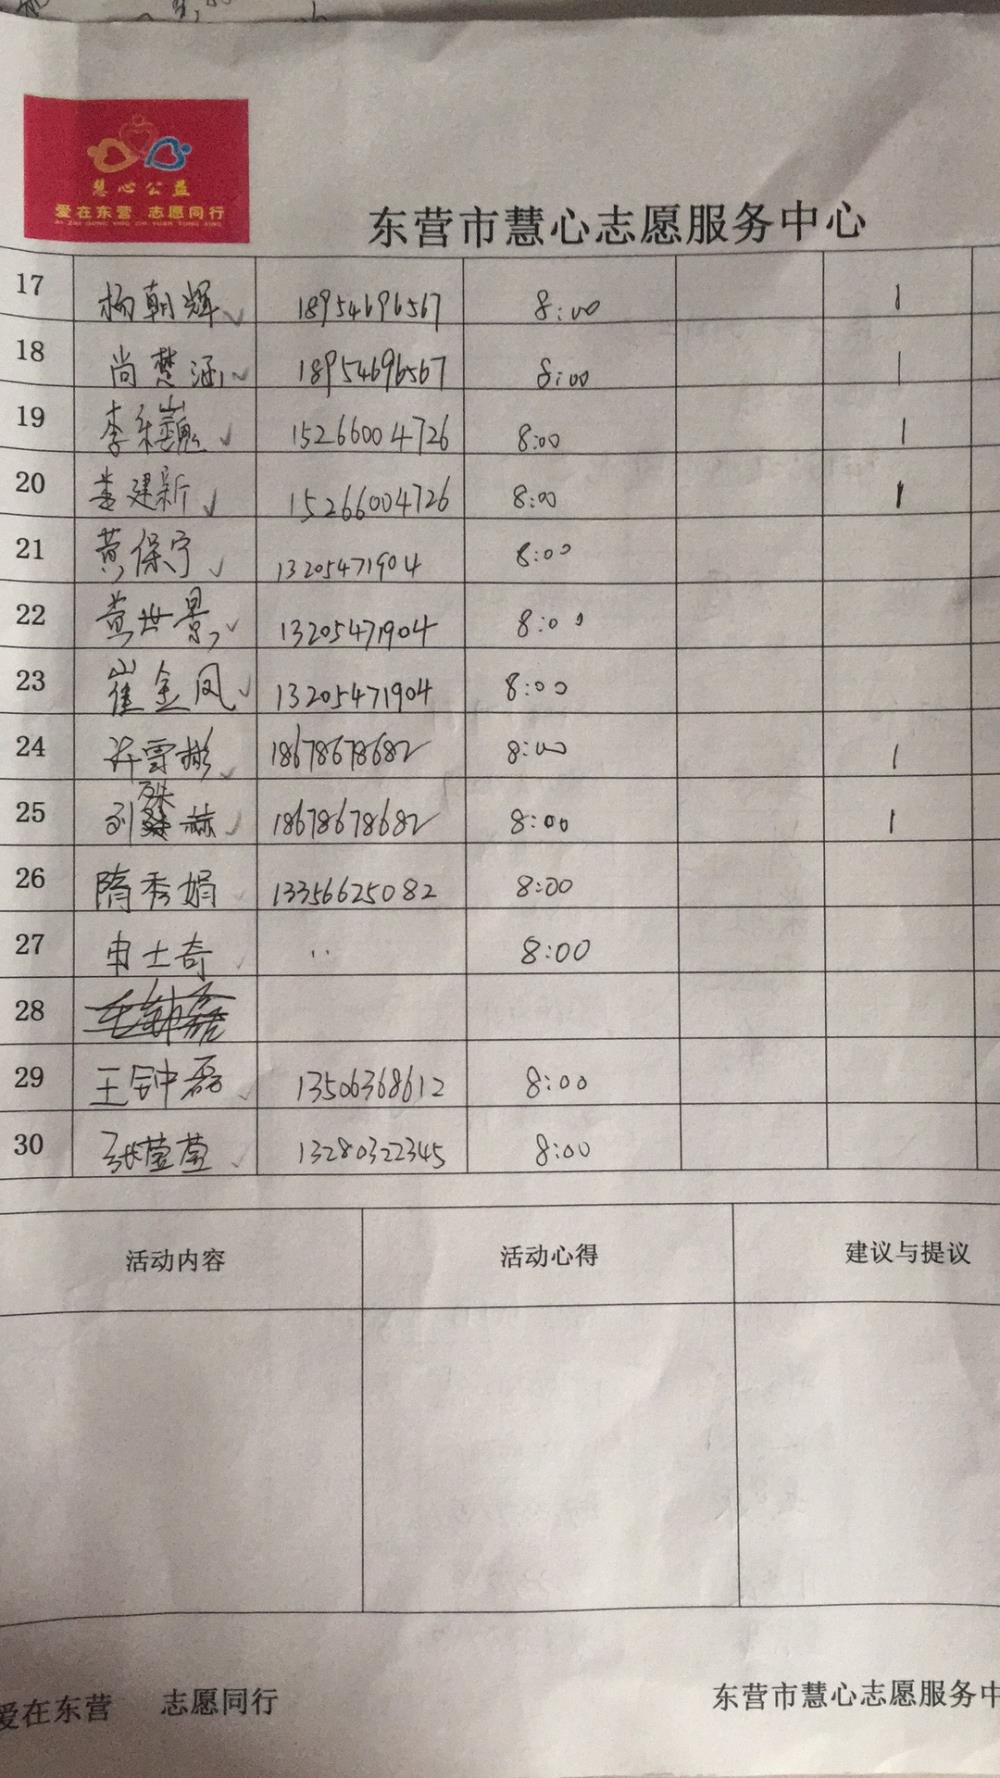 慧心公益
爱在东营 志愿同行
东营市慧心志愿服务中心
17 杨朝辉 18954696567 8:00 1
18 尚楚涵 18954696567 8:00 1
19 李 巍 15266004726 8:00 1
20 娄建新 15266004726 8:00 1
21 黄保宁 13205471904 8:00
22 黄世景 13205471904 8:00
23 崔金凤 13205471904 8:00
24 许雪彬 18678678682 8:00 1
25 刘殊赫 18678678682 8:00 1
26 隋秀娟 13356625082 8:00
27 申士奇 .. 8:00
28
29 王钟磊 13506368612 8:00
30 张莹莹 13280322345 8:00
活动内容 活动心得 建议与提议
爱在东营 志愿同行 东营市慧心志愿服务中